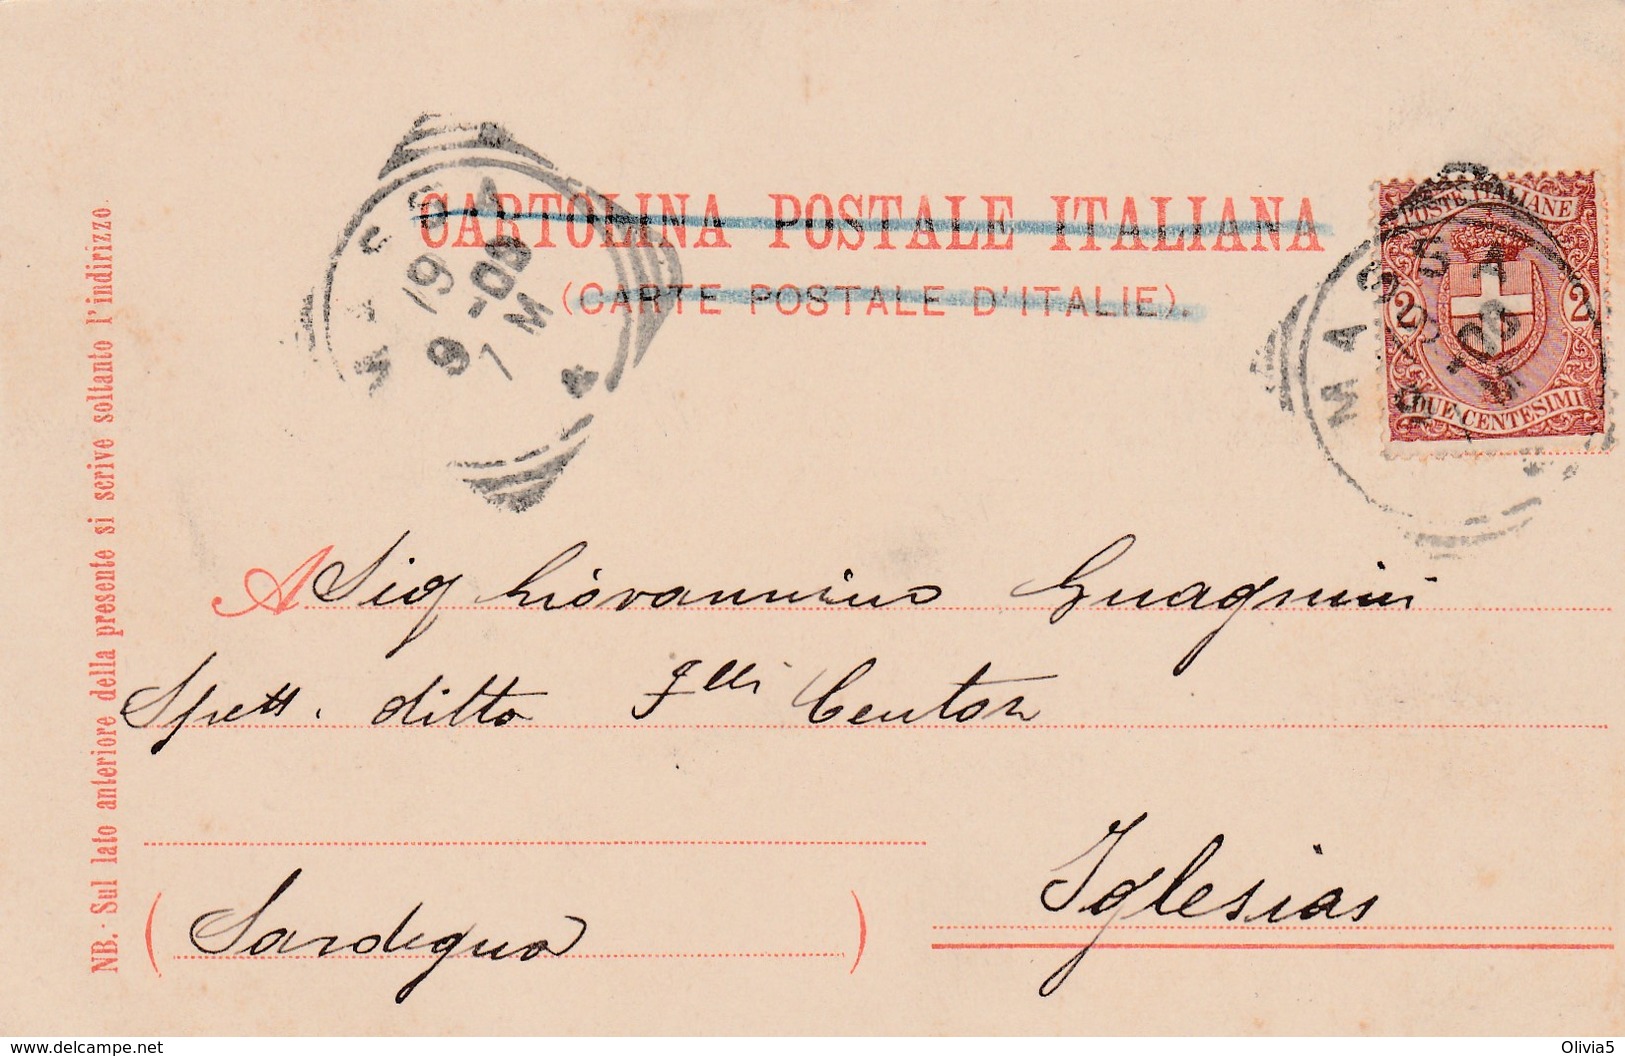 CARTOLINA POSTALE ITALIANA
(CARTE POSTALE D'ITALIE).
POSTE ITALIANE
2 2
DUE CENTESIMI
MASSA
9 -00
7 M
MASSA
NB.- Sul lato anteriore della presente si scrive soltanto l'indirizzo.
A Sig Giovannino Guagnini
Spett. ditta Flli Centoz
Iglesias
(Sardegna)
www.delcampe.net
Olivia5